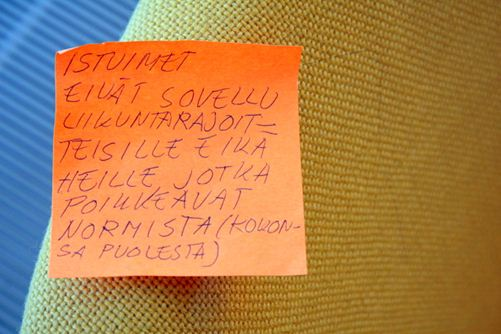 ISTUIMET
EIVÄT SOVELLU
LIIKUNTARAJOIT-
TEISILLE EIKÄ
HEILLE JOTKA
POIKKEAVAT
NORMISTA (KOKON-
SA PUOLESTA)